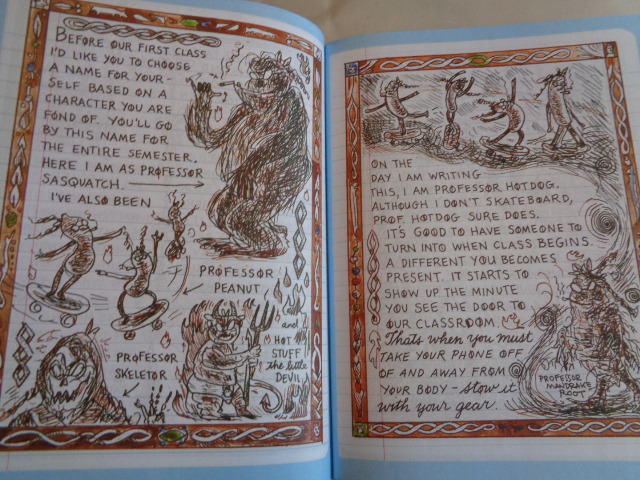 BEFORE OUR FIRST CLASS
I'D LIKE YOU TO CHOOSE
A NAME FOR YOUR-
SELF BASED ON A
CHARACTER YOU ARE
FOND OF. YOU'LL GO
BY THIS NAME FOR
THE ENTIRE SEMESTER.
HERE I AM AS PROFESSOR
SASQUATCH.
I'VE ALSO BEEN
PROFESSOR
PEANUT
PROFESSOR
SKELETOR
and
HOT
STUFF
The little
DEVIL
ON THE
DAY I AM WRITING
THIS, I AM PROFESSOR HOTDOG.
ALTHOUGH I DON'T SKATEBOARD,
PROF. HOTDOG SURE DOES.
IT'S GOOD TO HAVE SOMEONE TO
TURN INTO WHEN CLASS BEGINS.
A DIFFERENT YOU BECOMES
PRESENT. IT STARTS TO
SHOW UP THE MINUTE
YOU SEE THE DOOR TO
OUR CLASSROOM.
Thats when you must
TAKE YOUR PHONE OFF
OF AND AWAY FROM
YOUR BODY - stow it
with your gear.
PROFESSOR
MANDRAKE
ROOT